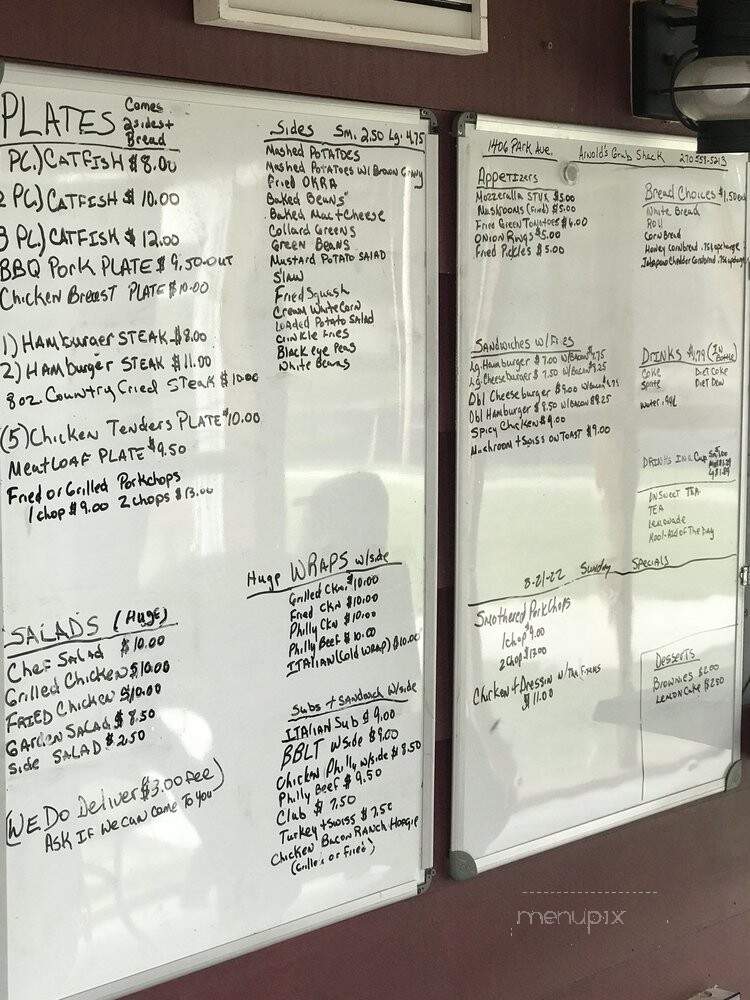 PLATES Comes 2 sides + Bread
PC.) CATFISH $8.00
2 PC) CATFISH $10.00
3 PC) CATFISH $12.00
BBQ PORK PLATE $9.50
Chicken Breast PLATE $10.00
1) Hamburger STEAK $8.00
2) Hamburger STEAK $11.00
8oz Country Fried Steak $10.00
(5) Chicken Tenders PLATE $10.00
Meatloaf PLATE $9.50
Fried or Grilled Porkchops
1 chop $9.00 2 chops $13.00
SALADS (Huge)
Chef Salad $10.00
Grilled Chicken $10.00
FRIED Chicken $10.00
GARDEN SALAD $8.50
Side SALAD $2.50
(WE DO Deliver $3.00 fee)
ASK IF WE CAN COME TO YOU
Sides Sm. 2.50 Lg. 4.75
Mashed POTATOES
Mashed POTATOES W/ Brown Gravy
Fried OKRA
Baked Beans
Baked Mac + Cheese
Collard Greens
Green Beans
Mustard Potato SALAD
Slaw
Fried Squash
Cream White Corn
Loaded Potato Salad
Crinkle Fries
Black eye Peas
White Beans
Huge WRAPS w/side
Grilled Ckn. $10.00
Fried CKN $10.00
Philly CKN $10.00
Philly Beef $10.00
ITALIAN (Cold WRAP) $10.00
Subs + Sandwich w/side
ITALIAN Sub $9.00
BBLT w side $9.00
Chicken Philly w/side $8.50
Philly Beef $9.50
Club $7.50
Turkey + Swiss $7.50
Chicken Bacon Ranch Hoagie
(Grilled or Fried)
1406 PARK Ave. Arnold's Grub Shack 270 559-5213
Appetizers
Mozzeralla STIX $5.00
Mushrooms (Fried) $5.00
Fried Green Tomatoes $6.00
ONION Rings $5.00
Fried Pickles $5.00
Bread Choices $1.50
White Bread
Roll
Cornbread
Honey cornbread .75¢ upcharge
Jalapeno Cheddar Cornbread .75¢ upcharge
Sandwiches w/Fries
Lg. Hamburger $7.00 w/Bacon $7.75
Lg. Cheeseburger $7.50 w/Bacon $8.25
Dbl Cheeseburger $9.00 w/Bacon $9.75
Dbl Hamburger $8.50 w/Bacon $9.25
SPICY Chicken $9.00
Mushroom + Swiss on TOAST $9.00
DRINKS $1.79 (IN Bottle)
Coke Diet Coke
Sprite DIET Dew
Water .99¢
DRINKS IN A CUP
UNSWEET TEA
TEA
Lemonade
Kool-Aid of The Day
8-21-22 Sunday SPECIALS
Smothered PorkChops
1 chop $9.00
2 Chop $13.00
Chicken + Dressin w/ The Fixens
$11.00
Desserts
BROWNIES $2.00
LEMON Cake $2.50
menupix